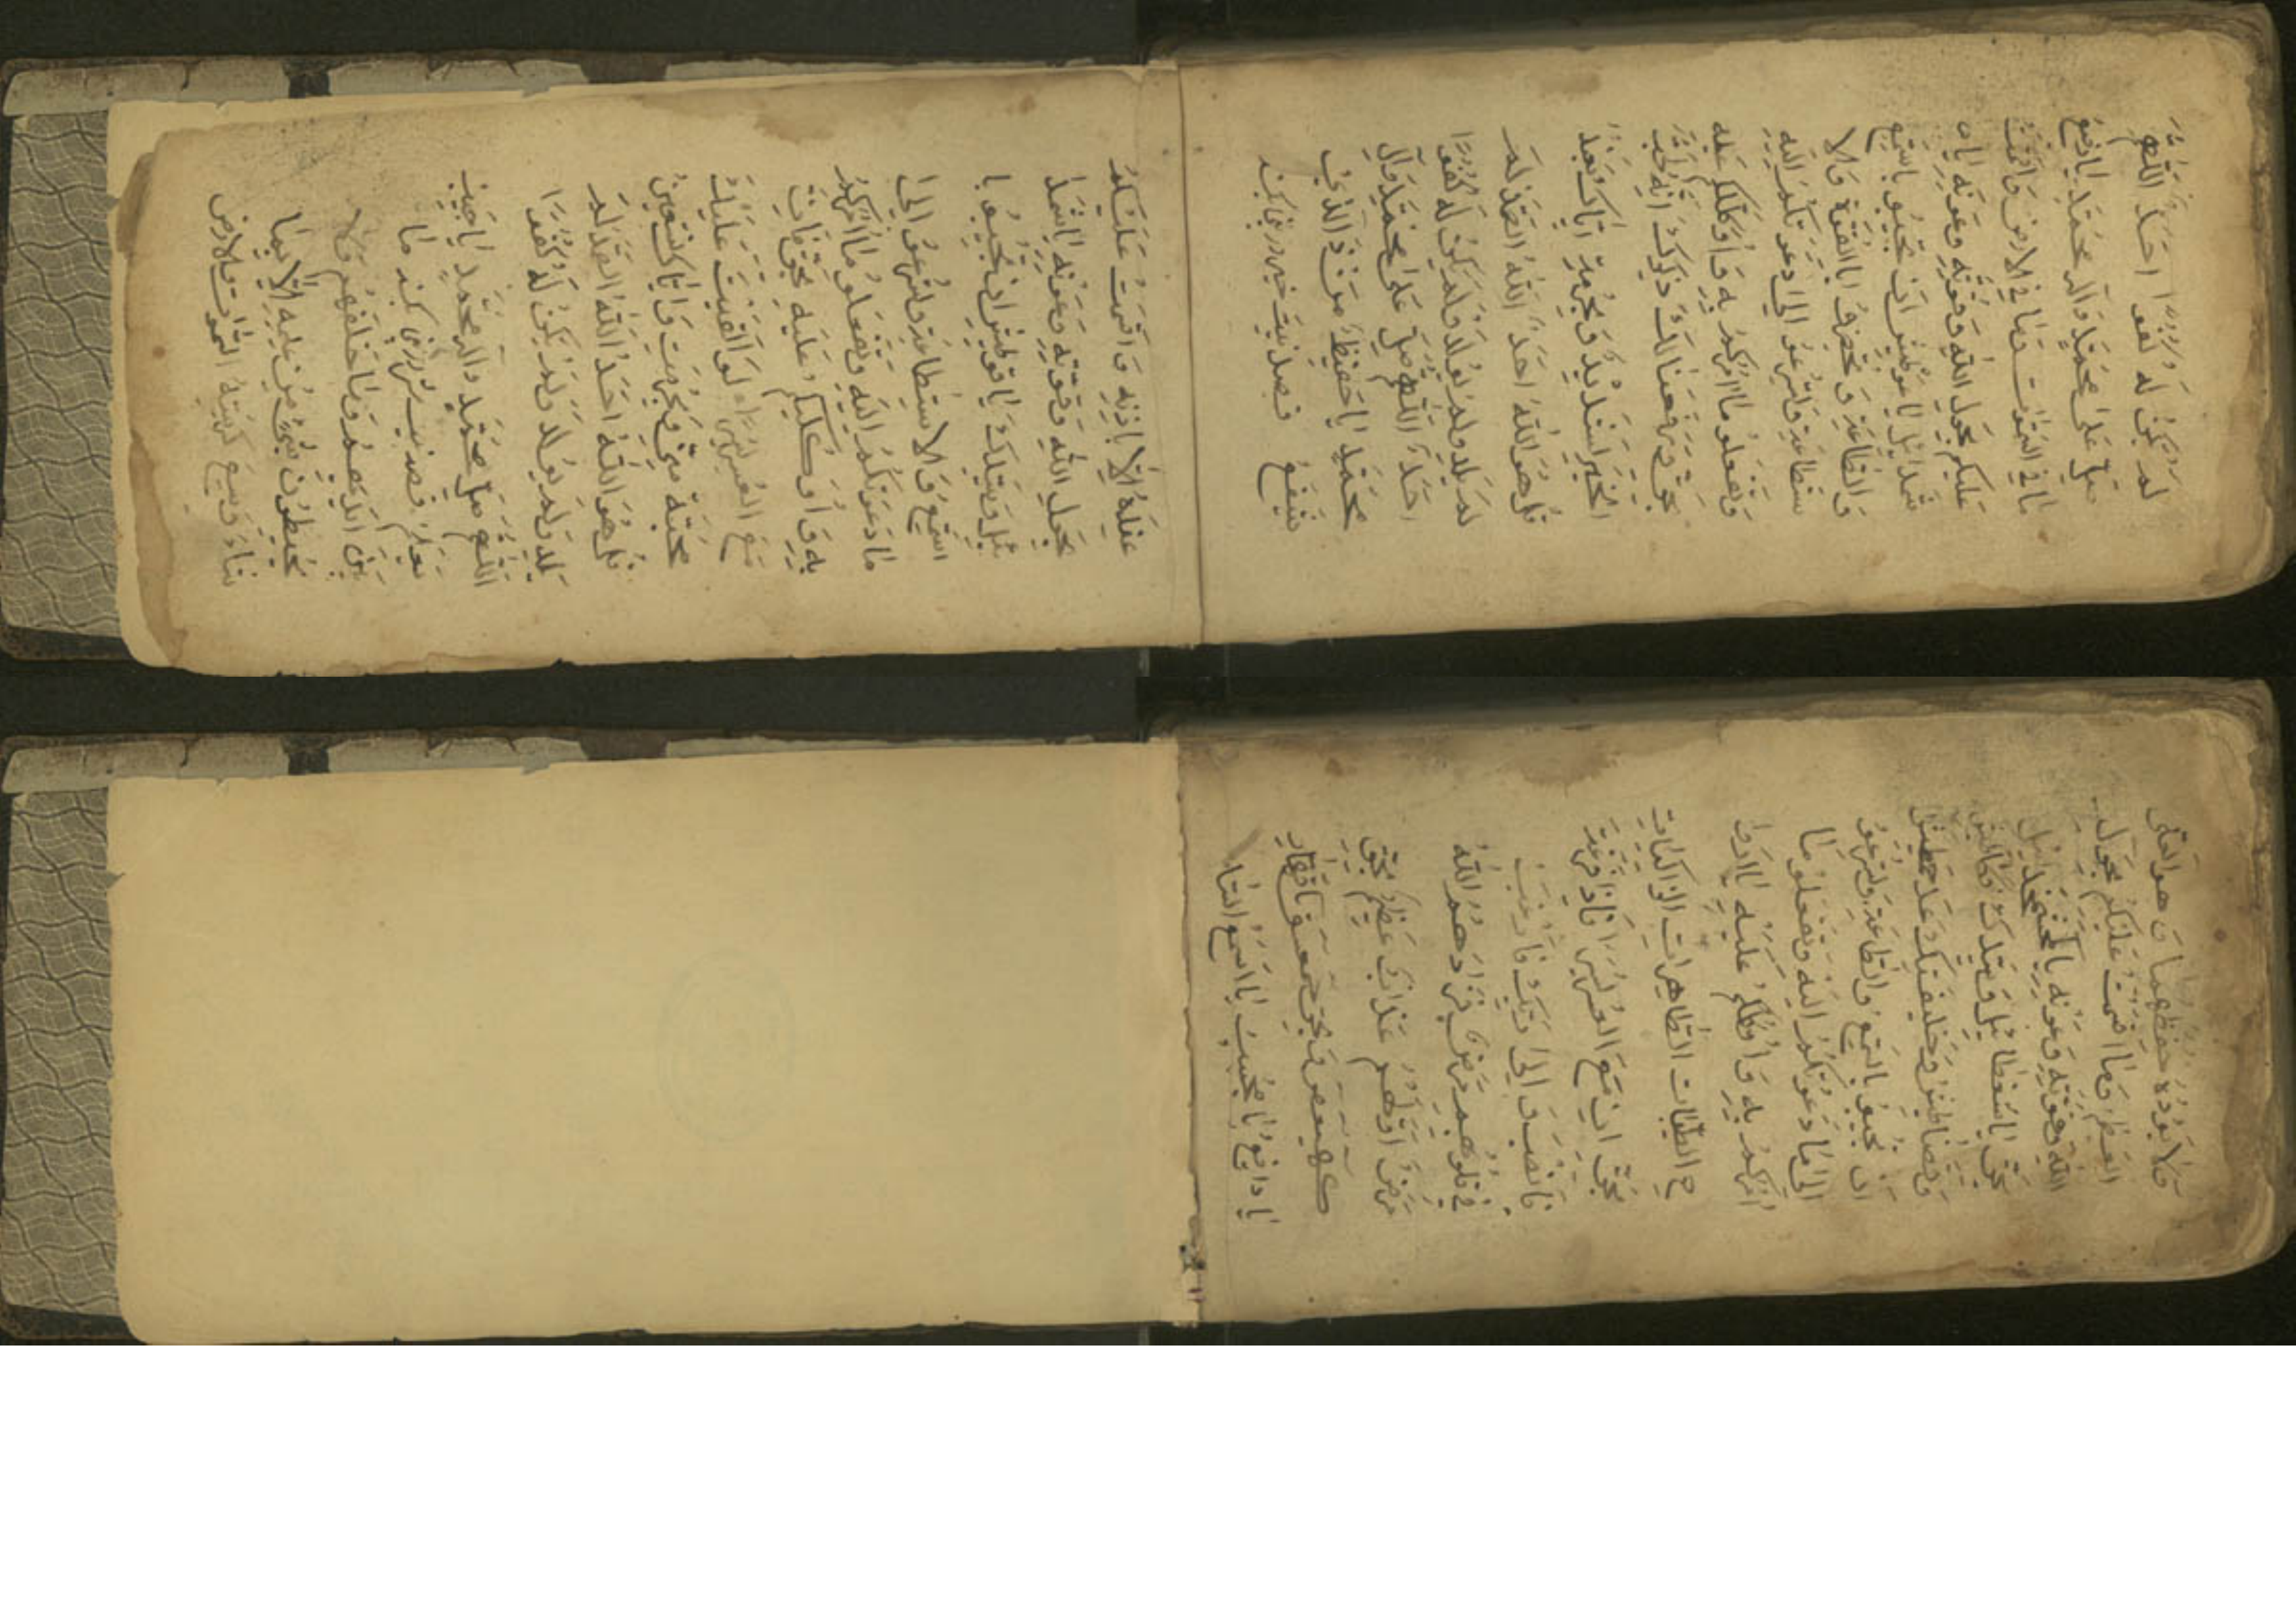 لم يكن له كفوا احد اللهم
صل على محمد وال محمد يا دافع
ما في السموات وما في الارض واقسمت
عليكم بحول الله وقوته وعونه يا
ان تجيبو باسميع
والطاعة و تحضرو باالقوة ولا
ستطاعة وتسرعو الى دعوتكم اليه
وتفعلو ما امركم به واوكلكم عليه
بحق ورفعنا لك ذكرك انه لحب
الخير لشديد وبحرمة اياك نعبد
قل هو الله احد الله الصمد لم
يلد ولم يولد ولم يكن له كفوا
احد اللهم صل على محمد وال
محمد يا حفيظ من ذ الذي
شيفع قصد نيت خير كند
عنده الا باذنه واقسمت عليكم
بحول الله وقوته وعونه
ئيل وبيدك ان تجيبوا
السميع ولاستطاعة وتسرعو الى
ما دعوتكم اليه وتفعلو ما امركم
به واوكلكم عليه بحق فان
مع العسر يسرا والقيت عليك
محبة مني وبحرمت واياك نستعين
قل هو الله احد الله الصمد لم
يلد ولم يولد ولم يكن له كفوا
اللهم صل محمد وال محمد يا مجيب
يعلم قصد نيت كند ما
بين ايديهم وما خلفهم ولا
يحيطون بشئ من علمه الا بما
شاء وسع كرسيه السموات والارض
ولا يؤده حفظهما و هو العلى
العظيم وما اقسمت عليكم بحول
الله وقوته وعونه
بحق وبيدك
ان تجيبو السميع والطاعة وتسرعو
الى ما دعوتكم اليه وتفعلو ما
امركم به واوكلكم عليه يا ارو
ح الطيبات الطاهرات الزاكيات
بحق ان مع العسر يسرا فاذا فرغت
فانصب و الى ربك فارغب
في قلوبهم مرض فزادهم الله
مرضا ولهم عذاب عظيم بحق
كهيعص وبحق حمعسق يا قهار
يا دافع يا مجيب يا سميع الدعا